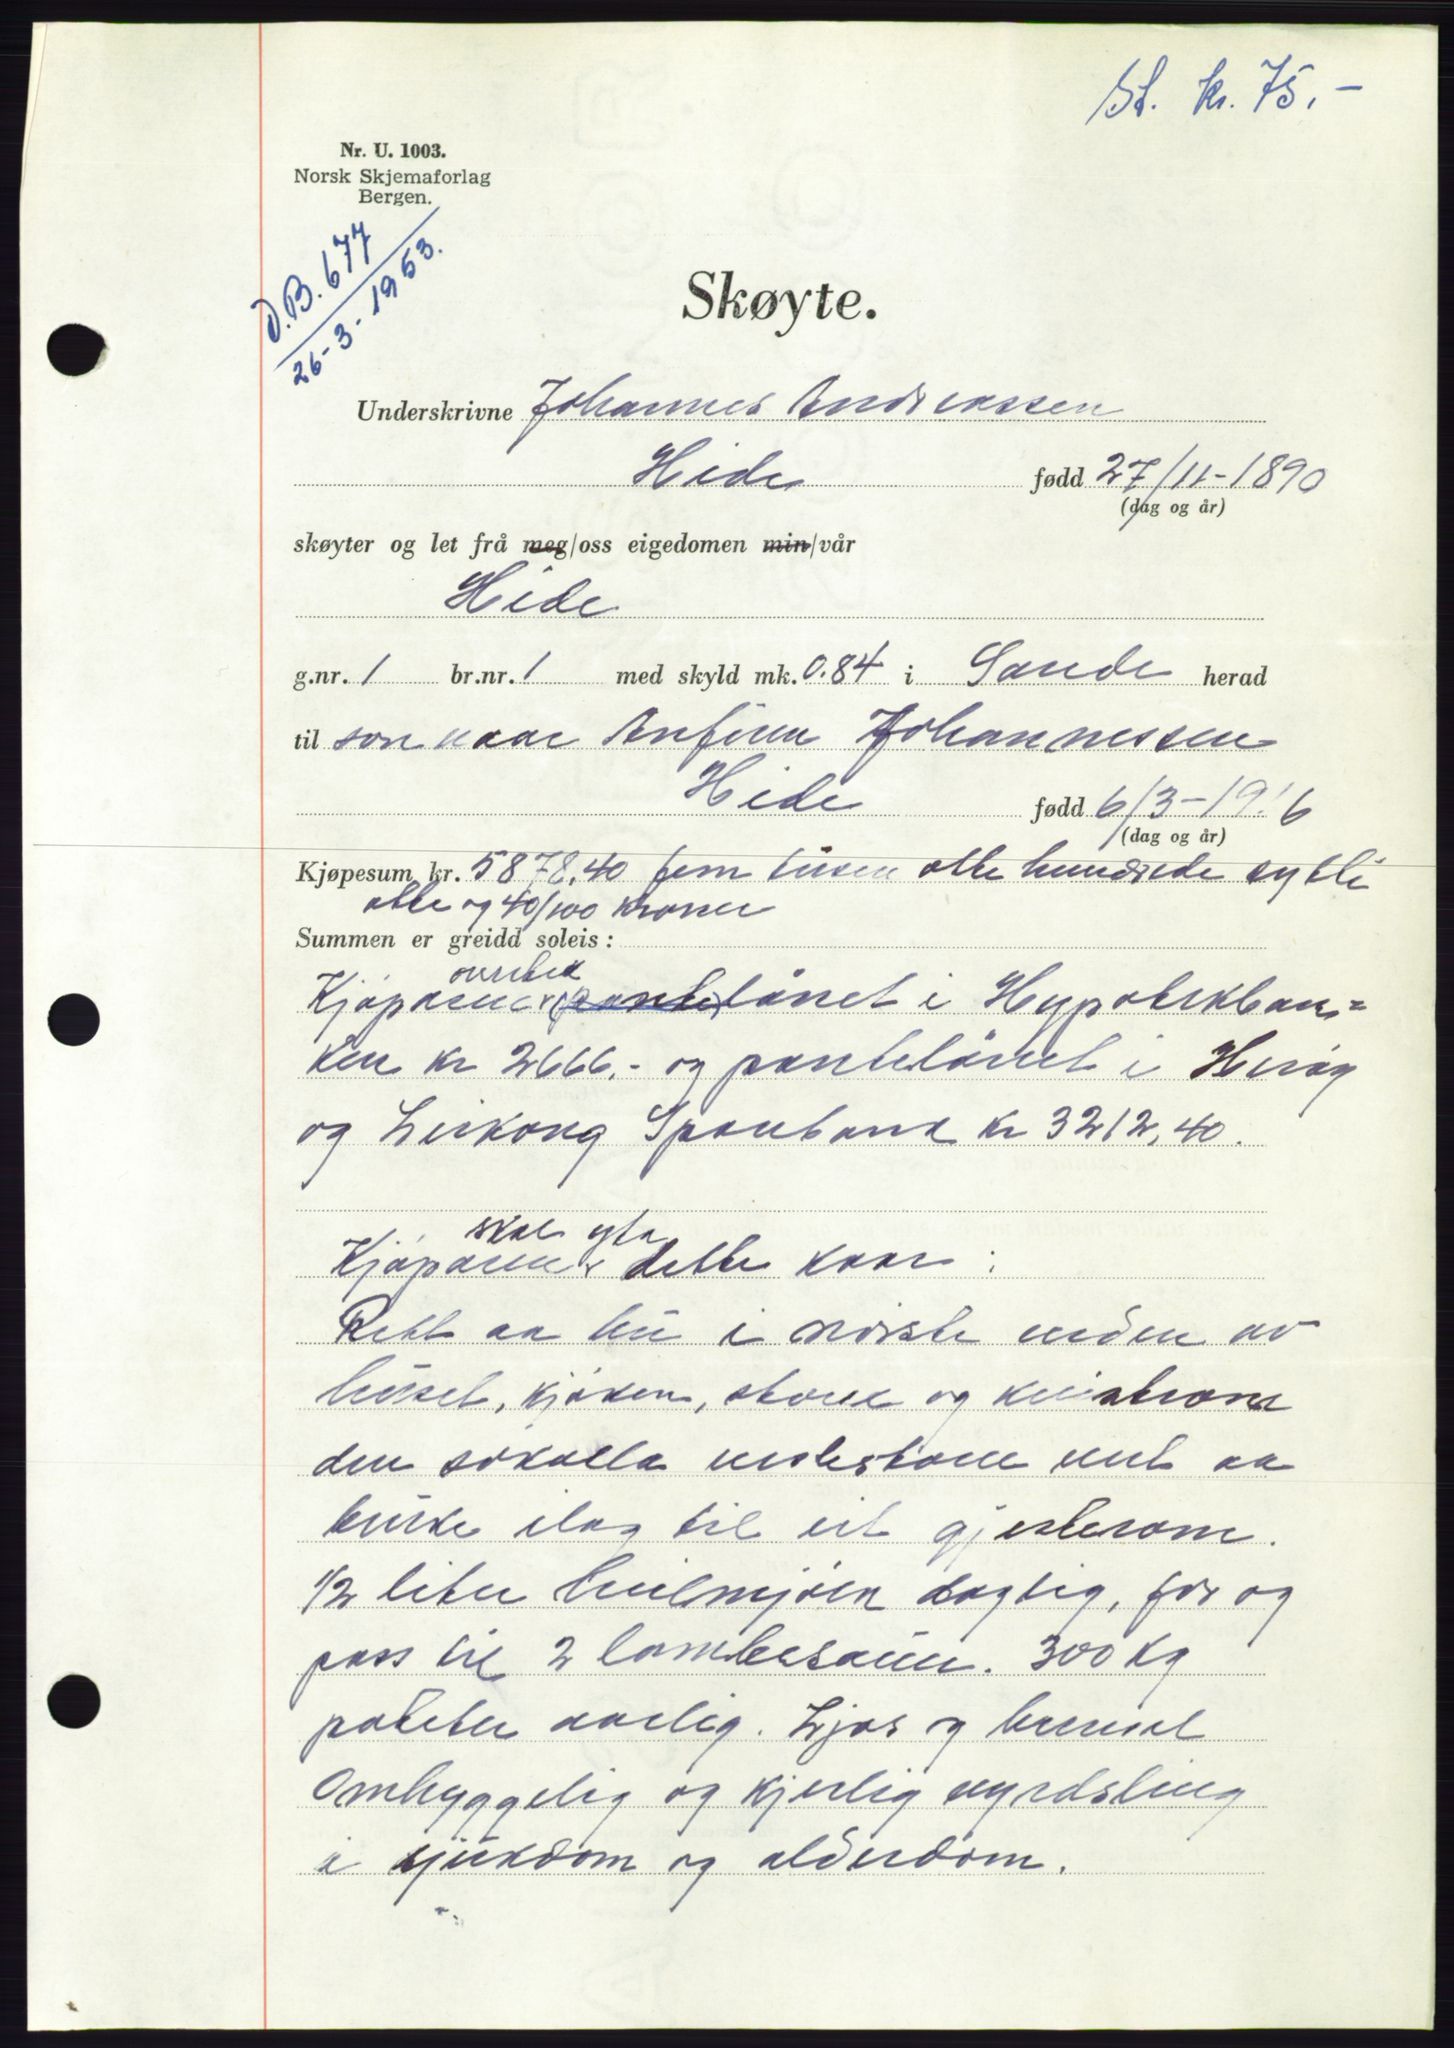 St. kr. 75.-
Nr. U. 1003.
Norsk Skjemaforlag
Bergen.
D.B. 677
26-3-1953.
Skøyte.
Underskrivne Johannes Andreassen
Hide fødd 27/11-1890
(dag og år)
skøyter og let frå meg/oss eigedomen min/vår
Hide
g.nr. 1 br.nr. 1 med skyld mk. 0.84 i Sande herad
til son vaar Anfinn Johannessen
Hide fødd 6/3-19
(dag og år)
Kjøpesum kr. 5878,40 fem tusen otte hundrede sytti
otte og 40/100 kroner
Summen er greidd soleis:
overtek
Kjøparen pantelånet i Hypotekban=
ken kr 2666.- og pantelånet i Herøy
og Leikong Sparebank kr 3212,40.
skal yta
Kjøparen dette kaar:
Rett aa bu i nørste enden av
huset, kjøken, stove og
den såkalla nordstove med aa
bruke ilag til eit gjesterom.
1/2 liter heilmjølk dagleg, for og
pass til 2 lambesauer. 300 kg
poteter aarlig. Ljos og brensel
Omhyggelig og kjerlig
i sjukdom og alderdom.